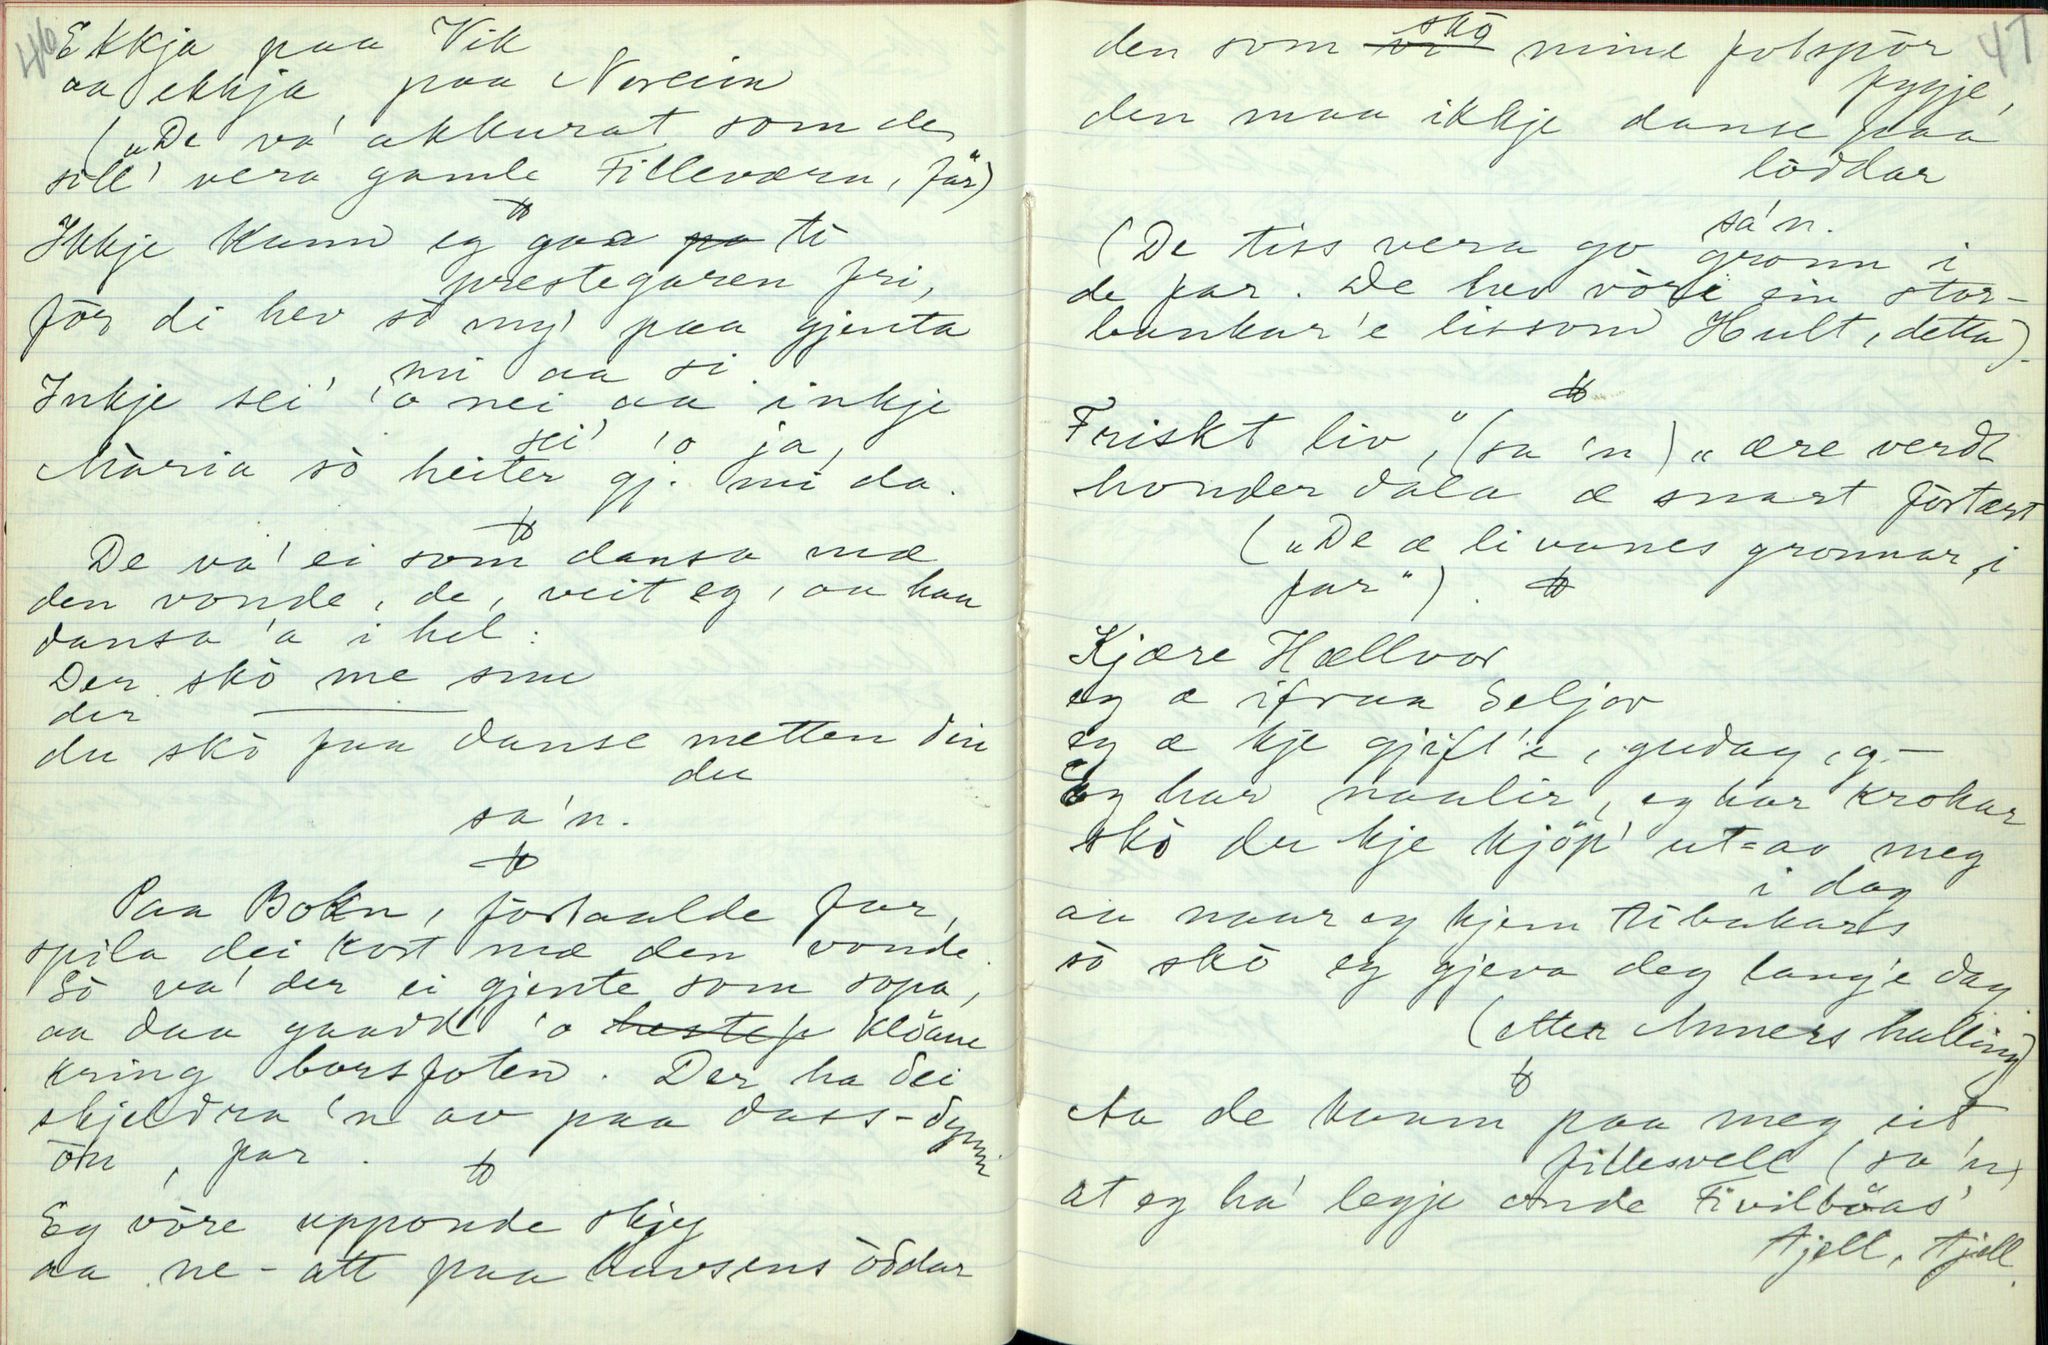 46
Ekkja paa Vik
aa ekkja paa Noreim
("De va' akkurat som de
sill' vera gamle Filleværn, får")
Ikkje kann eg gaa pa ti
prestegaren fri,
før di hev sò my' paa gjenta
mi aa si
Inkje sei' 'o nei aa inkje
sei' 'o ja,
Maria sò heiter gj. mi da.
De va' ei som dansa mæ
den vonde, de, veit eg, aa han
dansa 'a i hel:
Der skò me snu
der
du skò faa danse netten din
du
sa'n.
Paa Bokn, fórtaalde far,
spila dei kort mæ den vonde.
Sò va' der ei gjente som sopa,
aa daa gaadd' 'o hestef klóane
kring borsfoten. Der ha dei
skjeldra 'n av paa dass-dynni
òn, far.
Eg vòre upponde skjy
aa ne-att paa havsens òddar
47
den som vi skò mine fotspòr
fygje,
den maa ikkje danse paa
lòddar
sa'n.
(De tiss vera go gronn i
de far. De hev vòre ein stor-
bankar'e lissom Hult, detta).
Friskt liv", (sa 'n) "ære verdt
honder dala æ snart fòrtært
("De æ livanes gronnar, i
far").
Kjære Hællvor
eg æ ifraa Seljor
eg æ kje gjift'e, gudag, g.—
Eg har naalir, eg har krokar
skò du kje kjöp' ut=av meg
i dag
aa naar eg kjem tibakars
sò skò eg gjeva deg lang'e dag
(etter Anners halling)
Aa de kaam paa meg eit
fillesvell (sa 'n)
at eg ha' legje onde Fivilböas'
tjell, tjell.